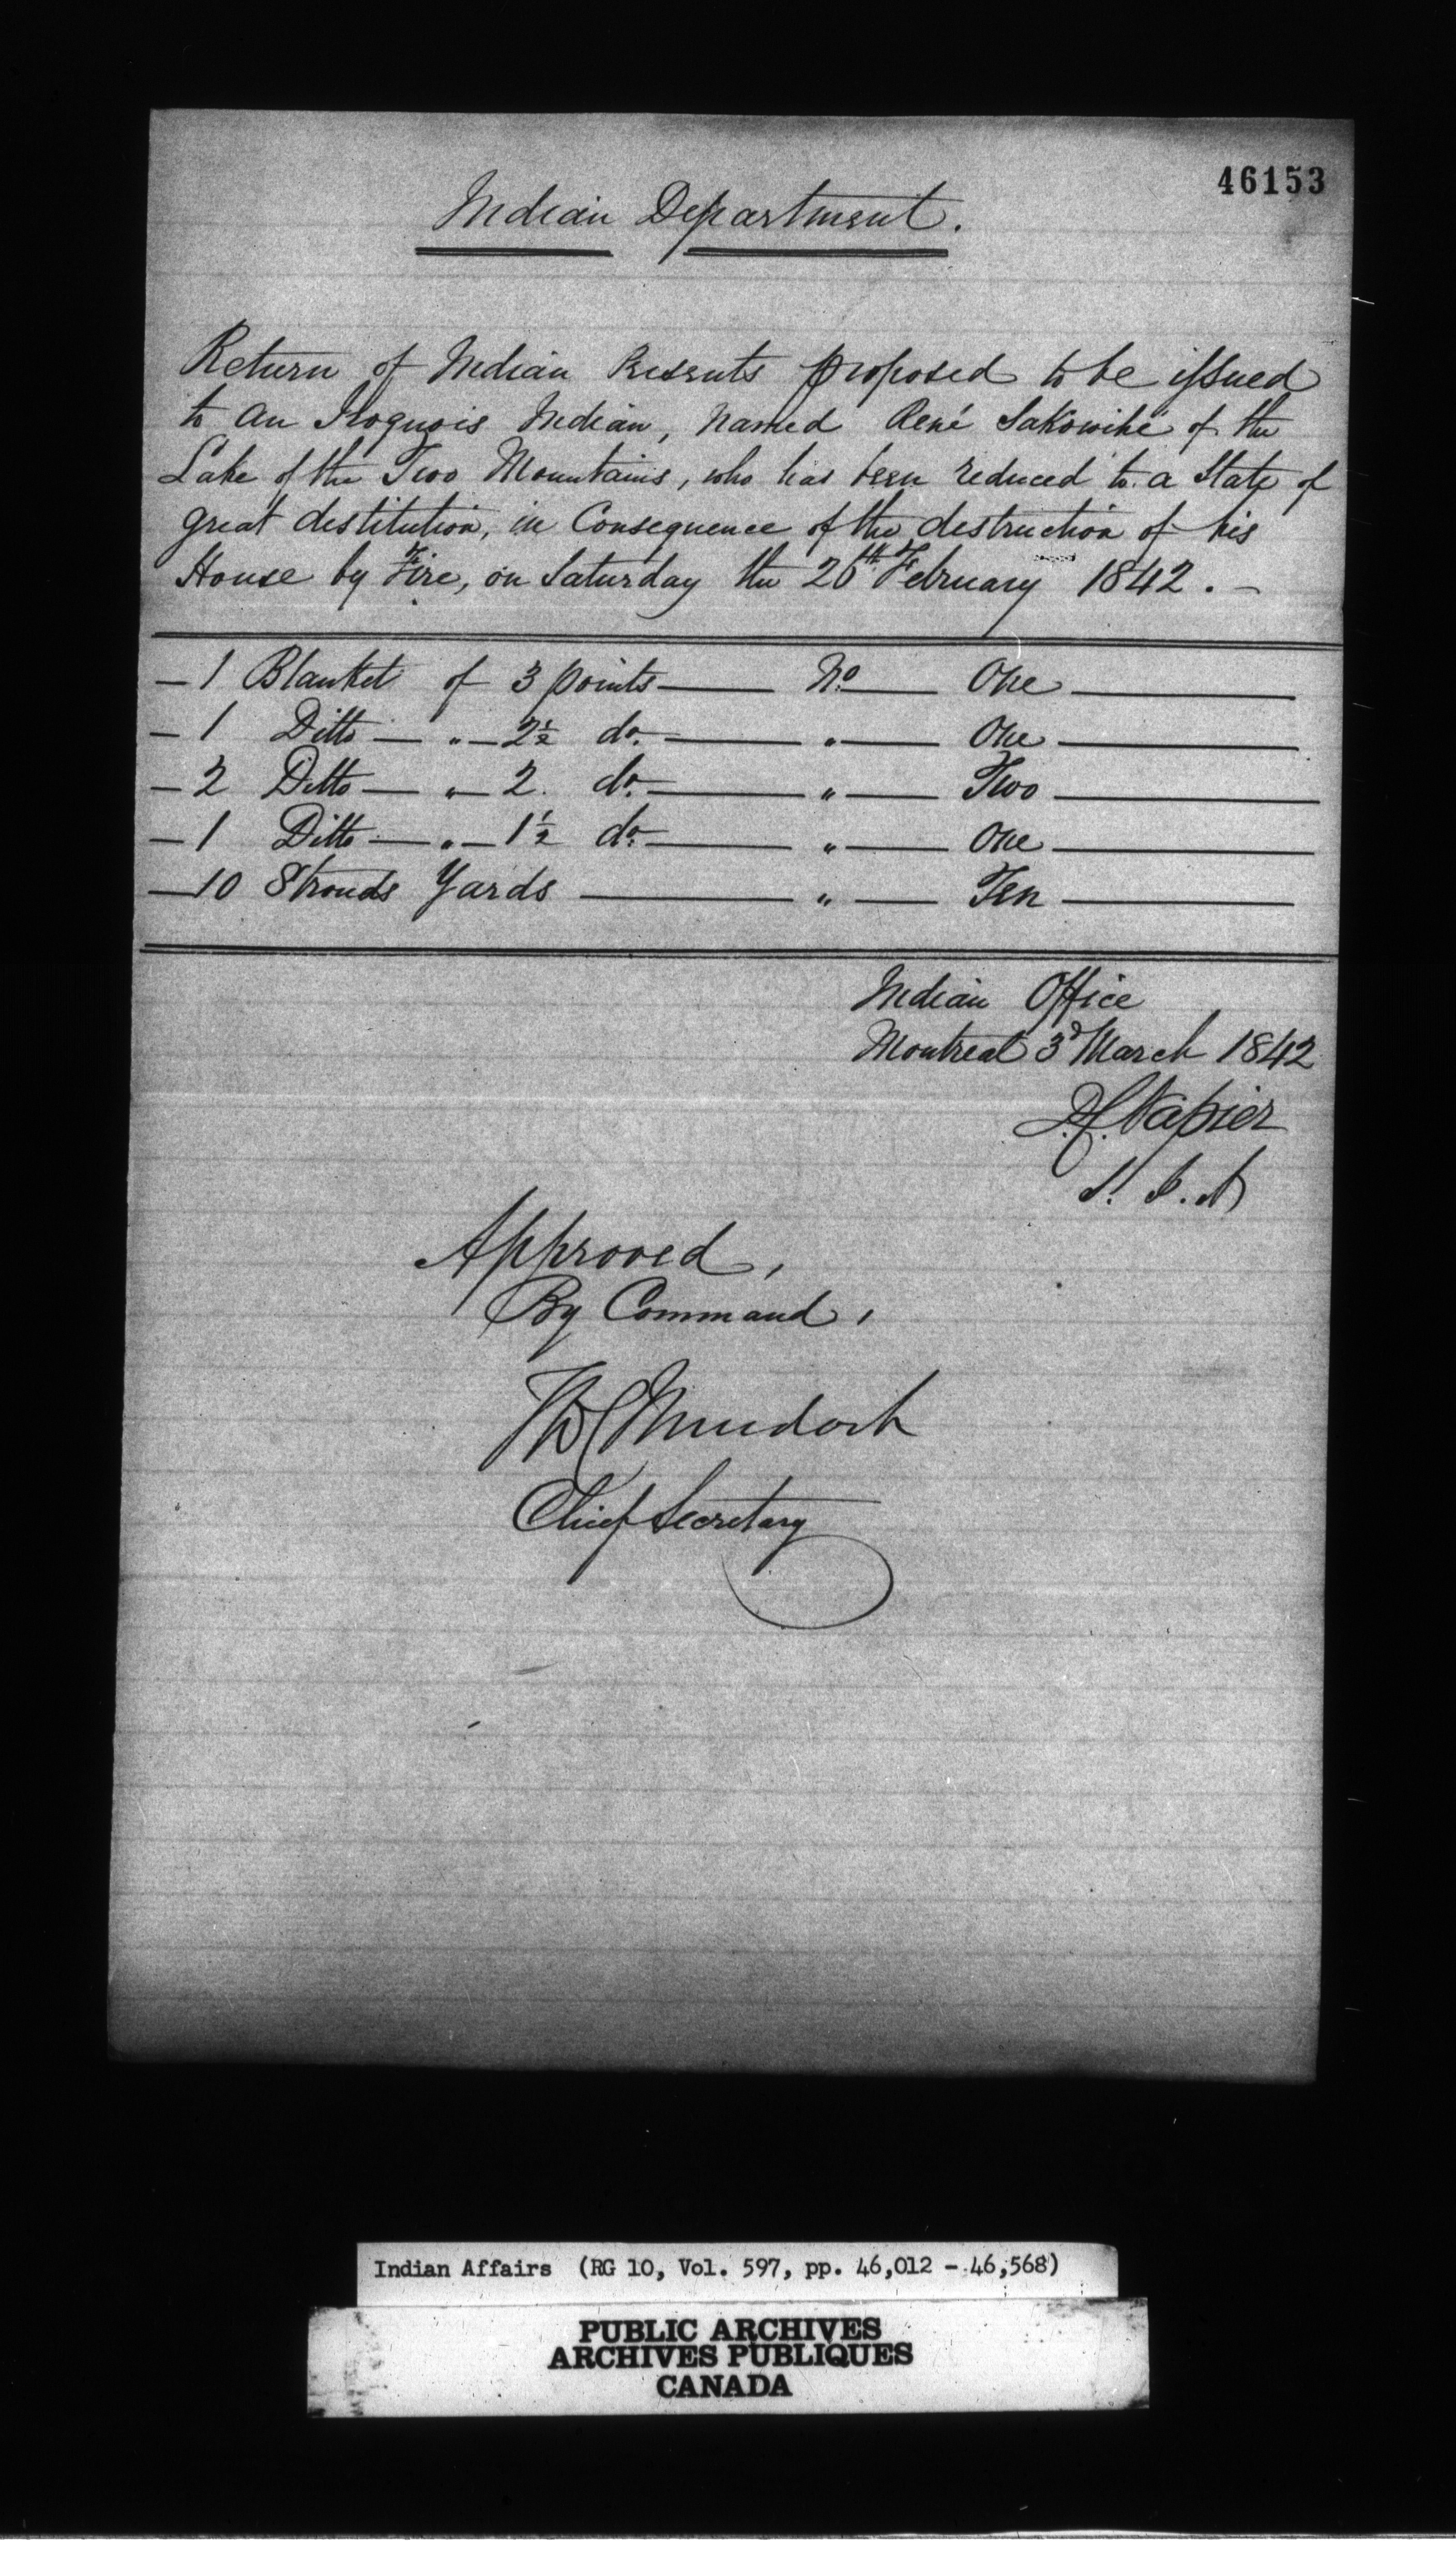 46153
Indian Department.
Return of Indian Presents proposed to be issued
to an Iroquois Indian, named René Sakowihé of the
Lake of the Two Mountains, who has been reduced to a State of
great destitution, in Consequence of the destruction of his
House by Fire, on Saturday the 26th February 1842. —
— 1 Blanket of 3 points — No. — One —
— 1 Ditto — " — 2½ do. — " — One —
— 2 Ditto — " — 2. do. — " — Two —
— 1 Ditto — " — 1½ do. — " — One —
— 10 Strouds Yards — " — Ten —
Indian Office
Montreal 3d March 1842
D.C. Napier
S. I. D
Approved,
By Command,
TWC Murdoch
Chief Secretary
Indian Affairs (RG 10, Vol. 597, pp. 46,012 - 46,568)
PUBLIC ARCHIVES
ARCHIVES PUBLIQUES
CANADA